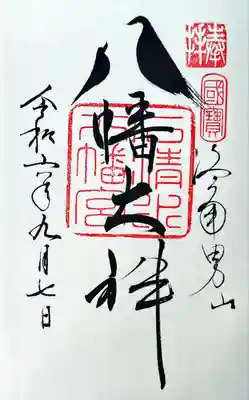 奉拝
國寶
八幡大神
石清水八幡宮
令和六年九月七日